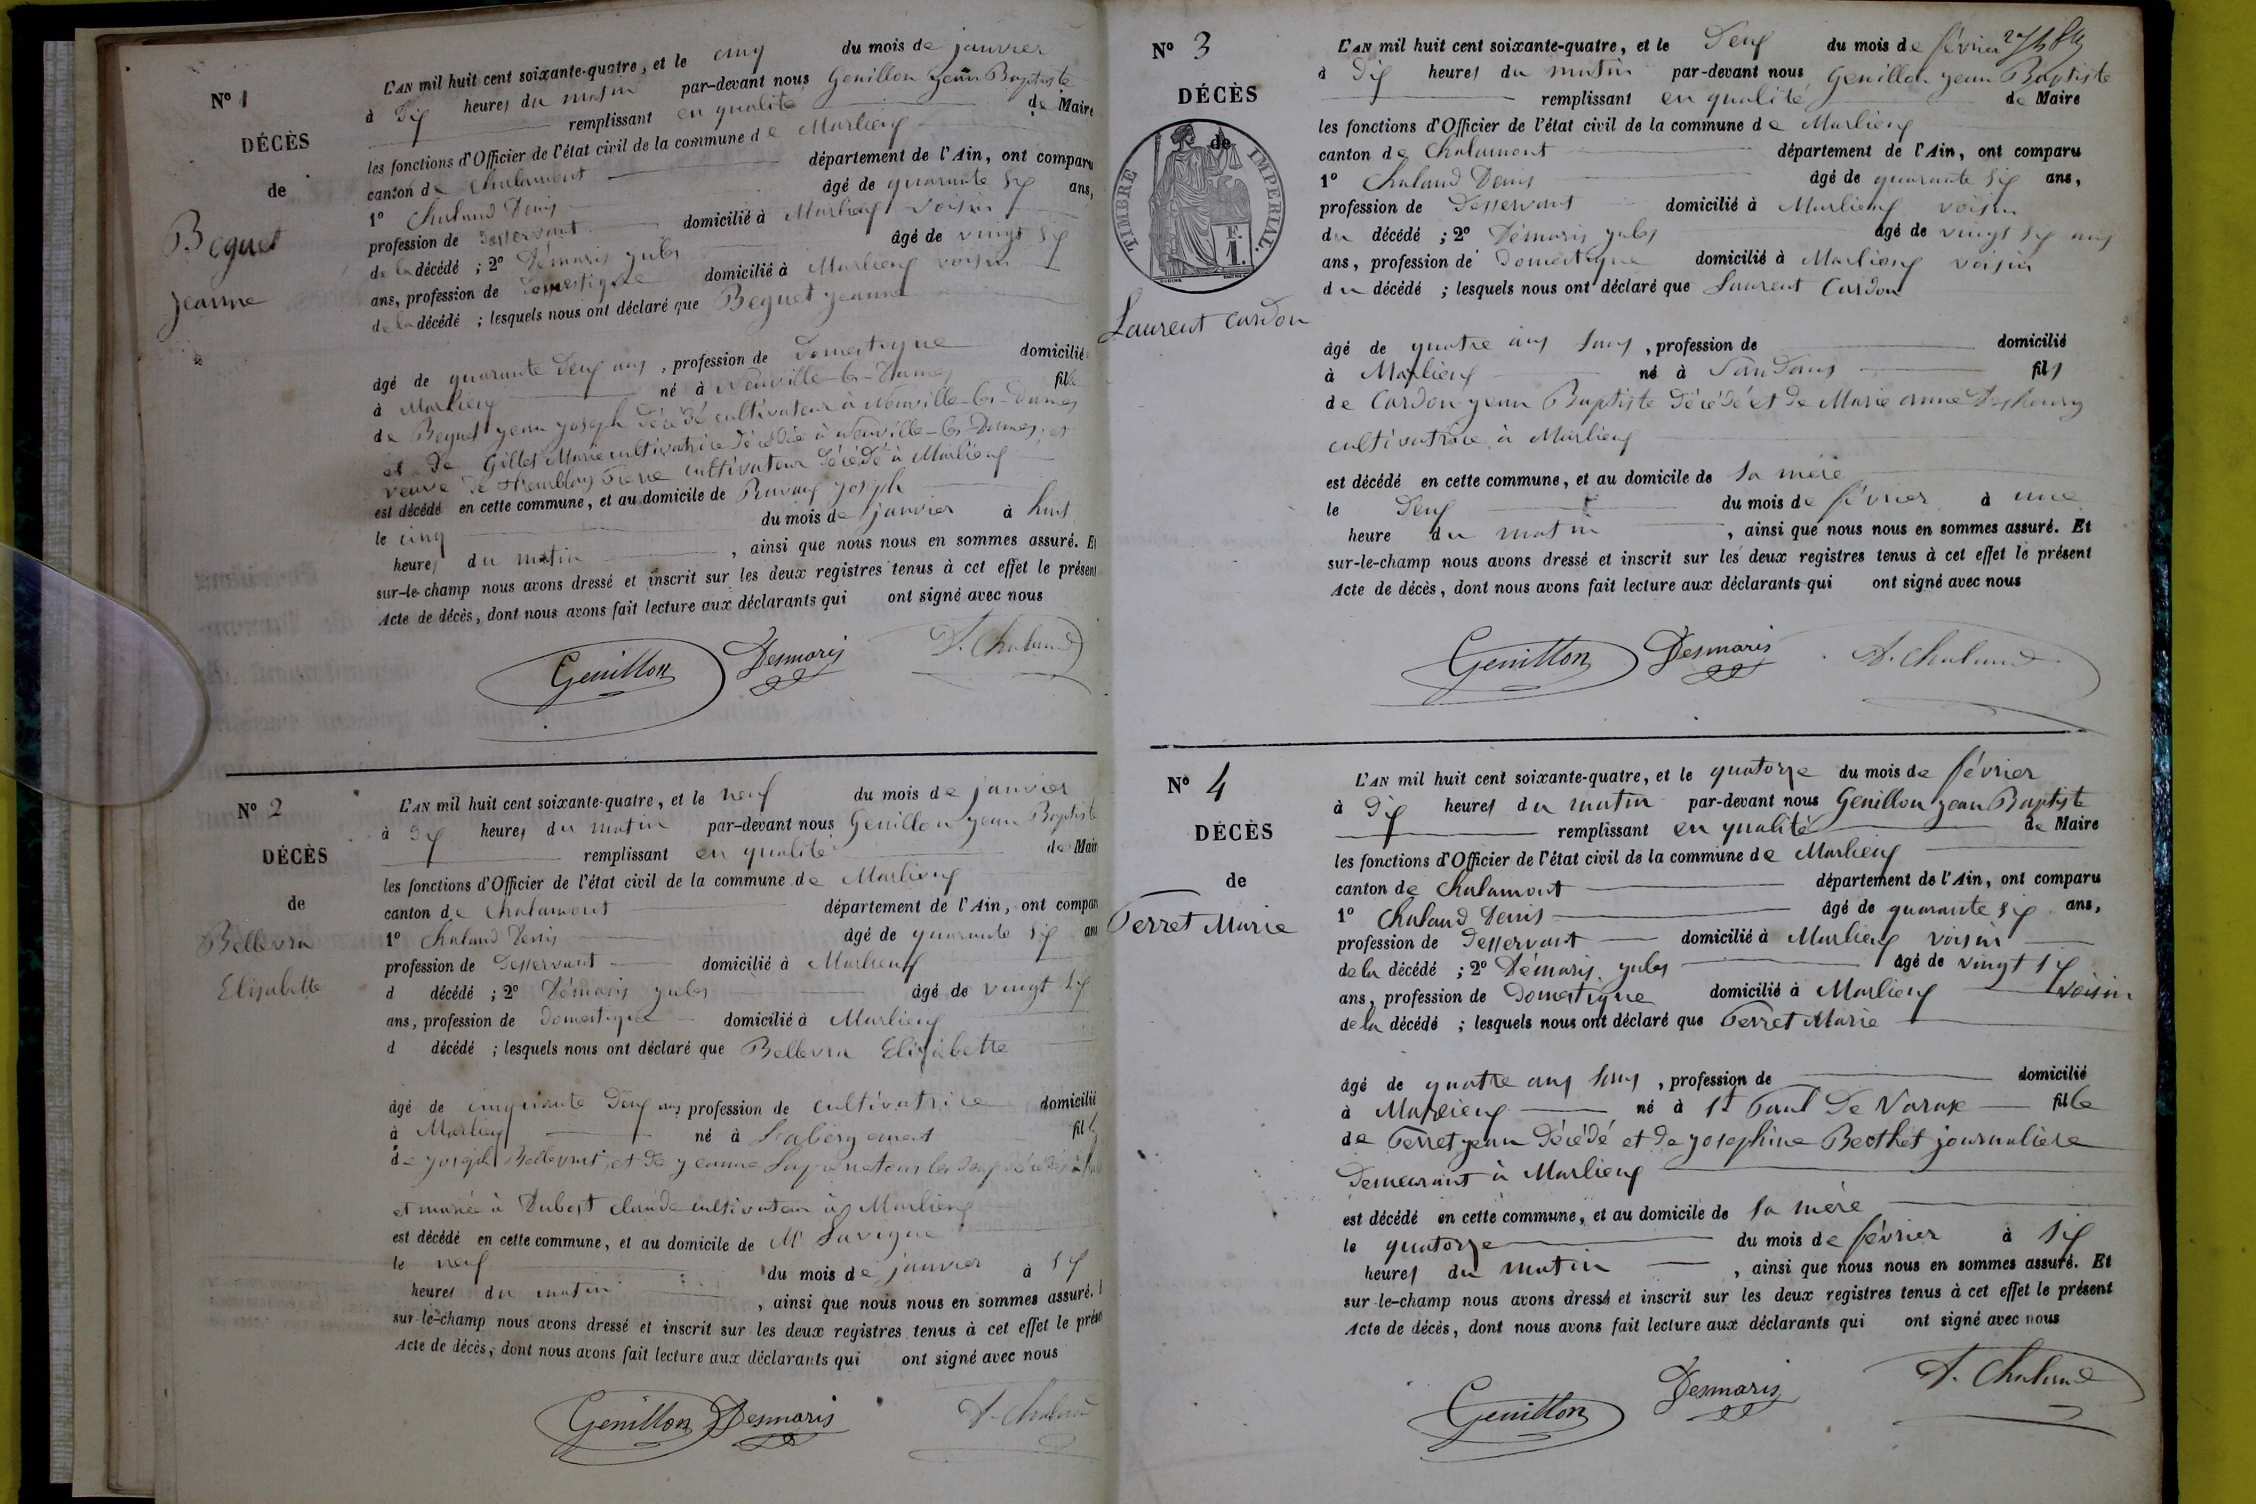 N° 1
DÉCÈS
de
Beguet
jeanne
L'AN mil huit cent soixante-quatre, et le cinq du mois de janvier
à dix heures du matin par-devant nous Genillon jean Baptiste
remplissant en qualité de Maire
les fonctions d'Officier de l'état civil de la commune de Marlieux
canton de Chalamont département de l'Ain, ont comparu
1° Chaland Denis âgé de quarante six ans,
profession de desservant domicilié à Marlieux voisin
de la décédé ; 2° Démaris jules âgé de vingt six
ans, profession de Domestique domicilié à Marlieux voisin
de la décédé ; lesquels nous ont déclaré que Beguet jeanne
âgé de quarante deux ans, profession de Domestique domicilié
à Marlieux né à Neuville-les-Dames fille
de Beguet jean joseph décédé cultivateur à Neuville-les-Dames
et de Gillet Marie cultivatrice décédée à Neuville-les-Dames, et
veuve de Tremblay Pierre cultivateur décédé à Marlieux
est décédé en cette commune, et au domicile de joseph
le cinq du mois de janvier à huit
heures du matin , ainsi que nous nous en sommes assuré. Et
sur-le-champ nous avons dressé et inscrit sur les deux registres tenus à cet effet le présent
Acte de décès, dont nous avons fait lecture aux déclarants qui ont signé avec nous
Genillon Desmaris D. Chaland
N° 2
DÉCÈS
de
Bellevra
Elisabette
L'AN mil huit cent soixante-quatre, et le neuf du mois de janvier
à dix heures du matin par-devant nous Genillon jean Baptiste
remplissant en qualité de Mair
les fonctions d'Officier de l'état civil de la commune de Marlieux
canton de Chalamont département de l'Ain, ont compar
1° Chaland Denis âgé de quarante six ans
profession de desservant domicilié à Marlieux
d décédé ; 2° Démaris jules âgé de vingt six
ans, profession de Domestique domicilié à Marlieux
d décédé ; lesquels nous ont déclaré que Bellevra Elisabette
âgé de cinquante deux ans profession de cultivatrice domicilié
à Marlieux né à fille
de joseph et de jeanne les deux décédés à
et mariée à Dubost claude cultivateur à Marlieux
est décédé en cette commune, et au domicile de Mr Lavigne
le neuf du mois de janvier à six
heures du matin , ainsi que nous nous en sommes assuré.
sur-le-champ nous avons dressé et inscrit sur les deux registres tenus à cet effet le prése
Acte de décès, dont nous avons fait lecture aux déclarants qui ont signé avec nous
Genillon Desmaris D. Chaland
N° 3
DÉCÈS
de
TIMBRE IMPÉRIAL.
F. 1.
Laurent Cardon
L'AN mil huit cent soixante-quatre, et le deux du mois de février
à dix heures du matin par-devant nous Genillon jean Baptiste
remplissant en qualité de Maire
les fonctions d'Officier de l'état civil de la commune de Marlieux
canton de Chalamont département de l'Ain, ont comparu
1° Chaland Denis âgé de quarante six ans,
profession de Desservant domicilié à Marlieux voisin
du décédé ; 2° Démaris jules âgé de vingt six ans
ans, profession de Domestique domicilié à Marlieux voisin
du décédé ; lesquels nous ont déclaré que Laurent Cardon
âgé de quatre ans sans, profession de domicilié
à Marlieux né à Sandrans fils
de Cardon jean Baptiste décédé et de Marie anne
cultivatrice à Marlieux
est décédé en cette commune, et au domicile de sa mère
le deux du mois de février à une
heure du matin , ainsi que nous nous en sommes assuré. Et
sur-le-champ nous avons dressé et inscrit sur les deux registres tenus à cet effet le présent
Acte de décès, dont nous avons fait lecture aux déclarants qui ont signé avec nous
Genillon Desmaris D. Chaland
N° 4
DÉCÈS
de
Perret Marie
L'AN mil huit cent soixante-quatre, et le quatorze du mois de février
à dix heures du matin par-devant nous Genillon jean Baptiste
remplissant en qualité de Maire
les fonctions d'Officier de l'état civil de la commune de Marlieux
canton de Chalamont département de l'Ain, ont comparu
1° Chaland Denis âgé de quarante six ans,
profession de Desservant domicilié à Marlieux voisin
de la décédé ; 2° Démaris jules âgé de vingt six
ans, profession de Domestique domicilié à Marlieux voisin
de la décédé ; lesquels nous ont déclaré que Perret Marie
âgé de quatre ans sans, profession de domicilié
à Marlieux né à St Paul De Varax fille
de Perret jean décédé et de josephine Berthet journalière
Demeurant à Marlieux
est décédé en cette commune, et au domicile de sa mère
le quatorze du mois de février à six
heures du matin , ainsi que nous nous en sommes assuré. Et
sur-le-champ nous avons dressé et inscrit sur les deux registres tenus à cet effet le présent
Acte de décès, dont nous avons fait lecture aux déclarants qui ont signé avec nous
Genillon Desmaris D. Chaland